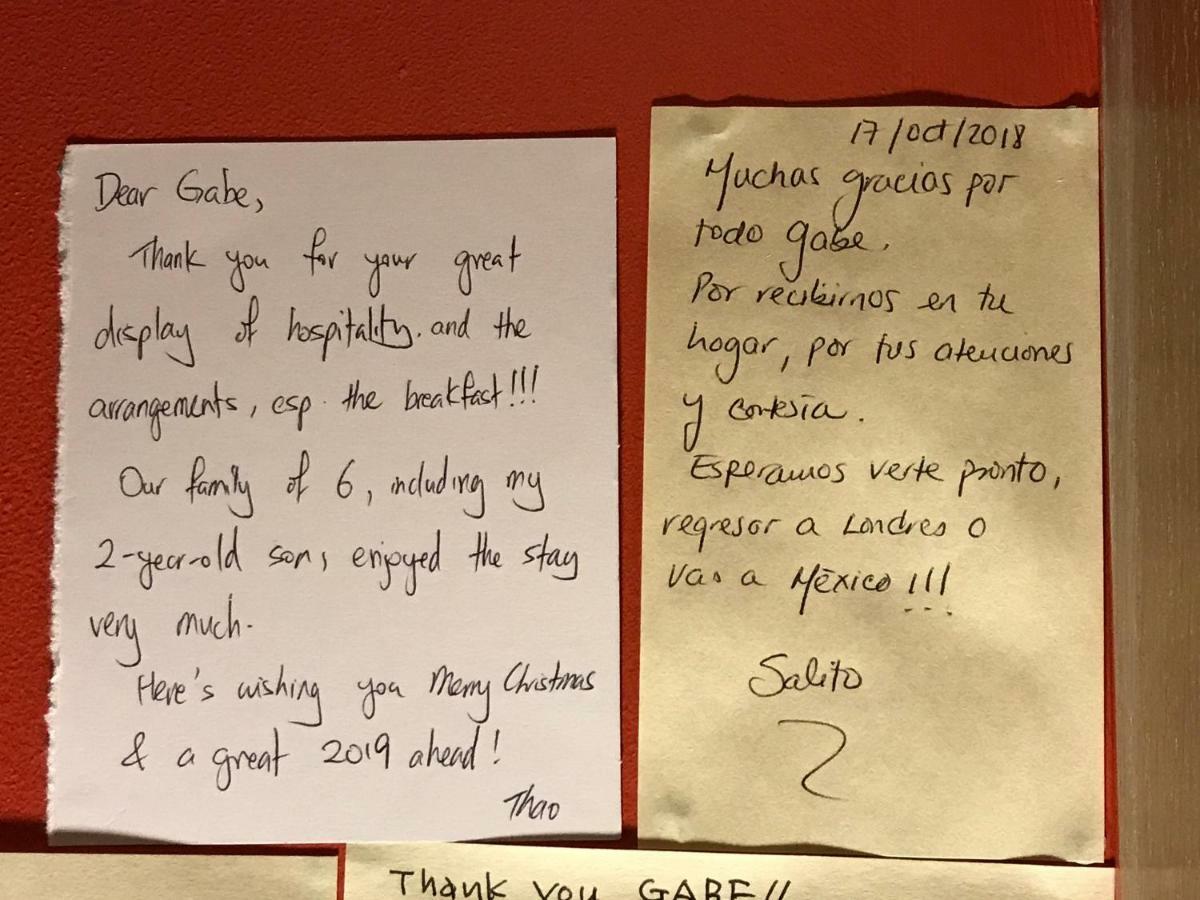 Dear Gabe,
Thank you for your great
display of hospitality. and the
arrangements, esp. the breakfast!!!
Our family of 6, including my
2-year-old son, enjoyed the stay
very much.
Here's wishing you Merry Christmas
& a great 2019 ahead!
Thao
17/oct/2018
Muchas gracias por
todo Gabe.
Por recibirnos en tu
hogar, por tus atenciones
y cortesía.
Esperamos verte pronto,
regresar a Londres o
vas a México!!!
Salito
Thank you GABE!!